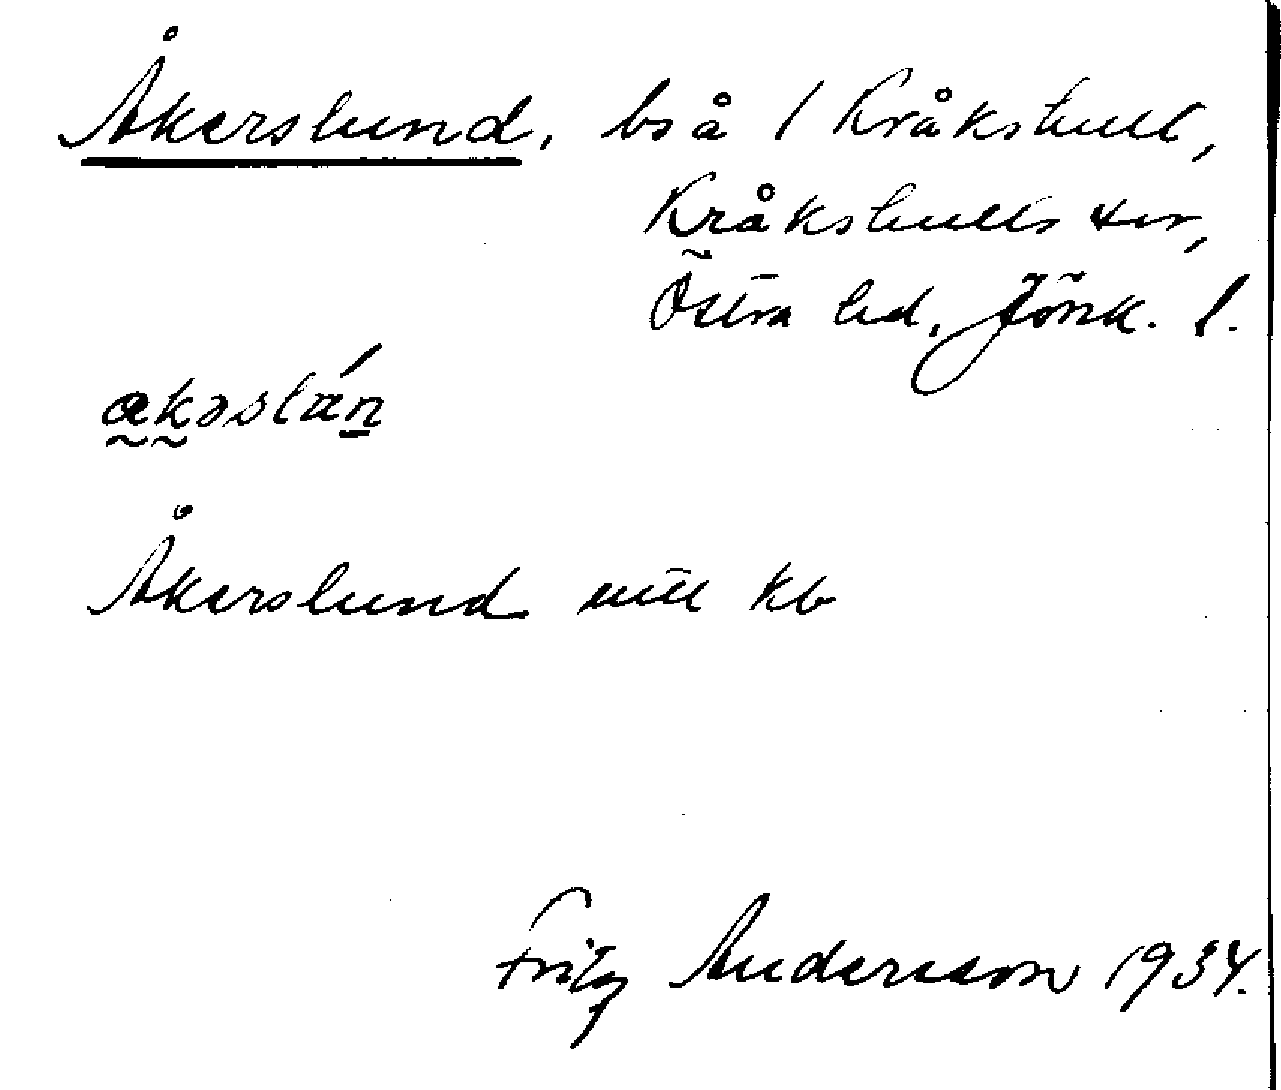 Åkerslund, bså / Kråkshult,
Kråkshults sn,
Östra hd, Jönk. l.
Åkerslund mtl kb
Fritz Andersson 1934.